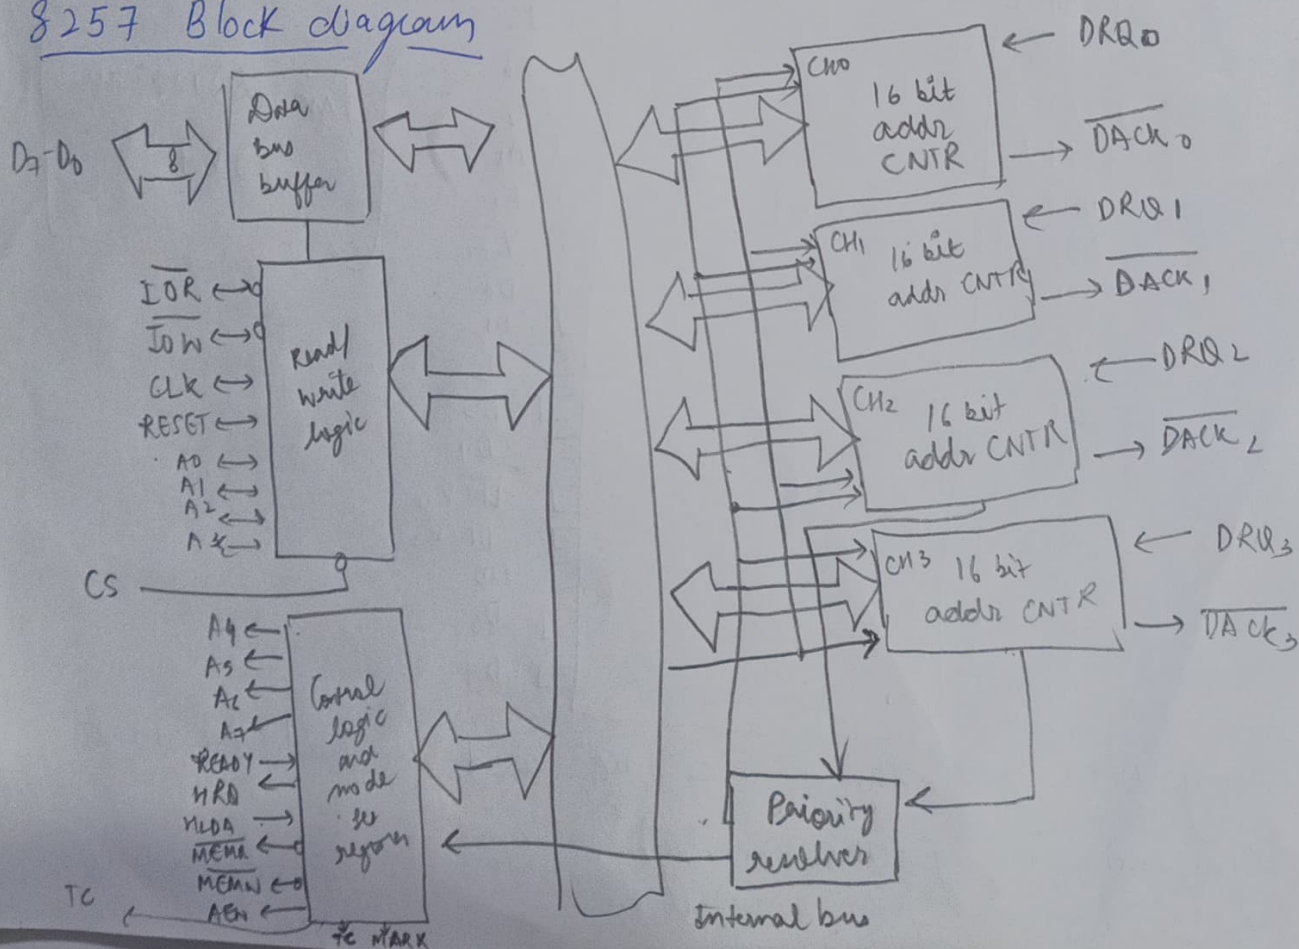 8257 Block diagram
D7-D0
8
Data
bus
buffer
I̅O̅R̅
I̅O̅W̅
CLK
RESET
A0
A1
A2
CS
Read/
write
logic
A4
A5
A6
A7
READY
HRQ
HLDA
M̅E̅M̅R̅
M̅E̅M̅W̅
AEN
TC
TC MARK
Control
logic
and
mode
set
CH0
16 bit
addr
CNTR
DRQ0
D̅A̅C̅K̅0
CH1
16 bit
addr CNTR
DRQ1
D̅A̅C̅K̅1
CH2
16 bit
addr CNTR
DRQ2
D̅A̅C̅K̅2
CH3
16 bit
addr CNTR
DRQ3
D̅A̅C̅K̅3
Priority
resolver
Internal bus